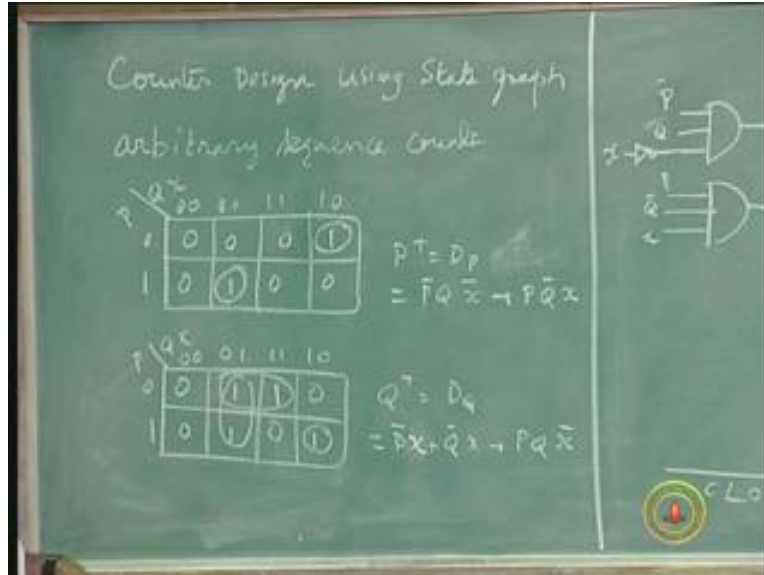 Counter Design using State graph
arbitrary sequence counter
Qx
00 01 11 10
P
0 0 0 0 1
1 0 1 0 0
P⁺ = D_P
= P̄Qx̄ + PQ̄x
Qx
00 01 11 10
P
0 0 1 1 0
1 0 1 0 1
Q⁺ = D_Q
= P̄x + Q̄x + PQx̄
P̄
Q
x
P
Q̄
x
CLO